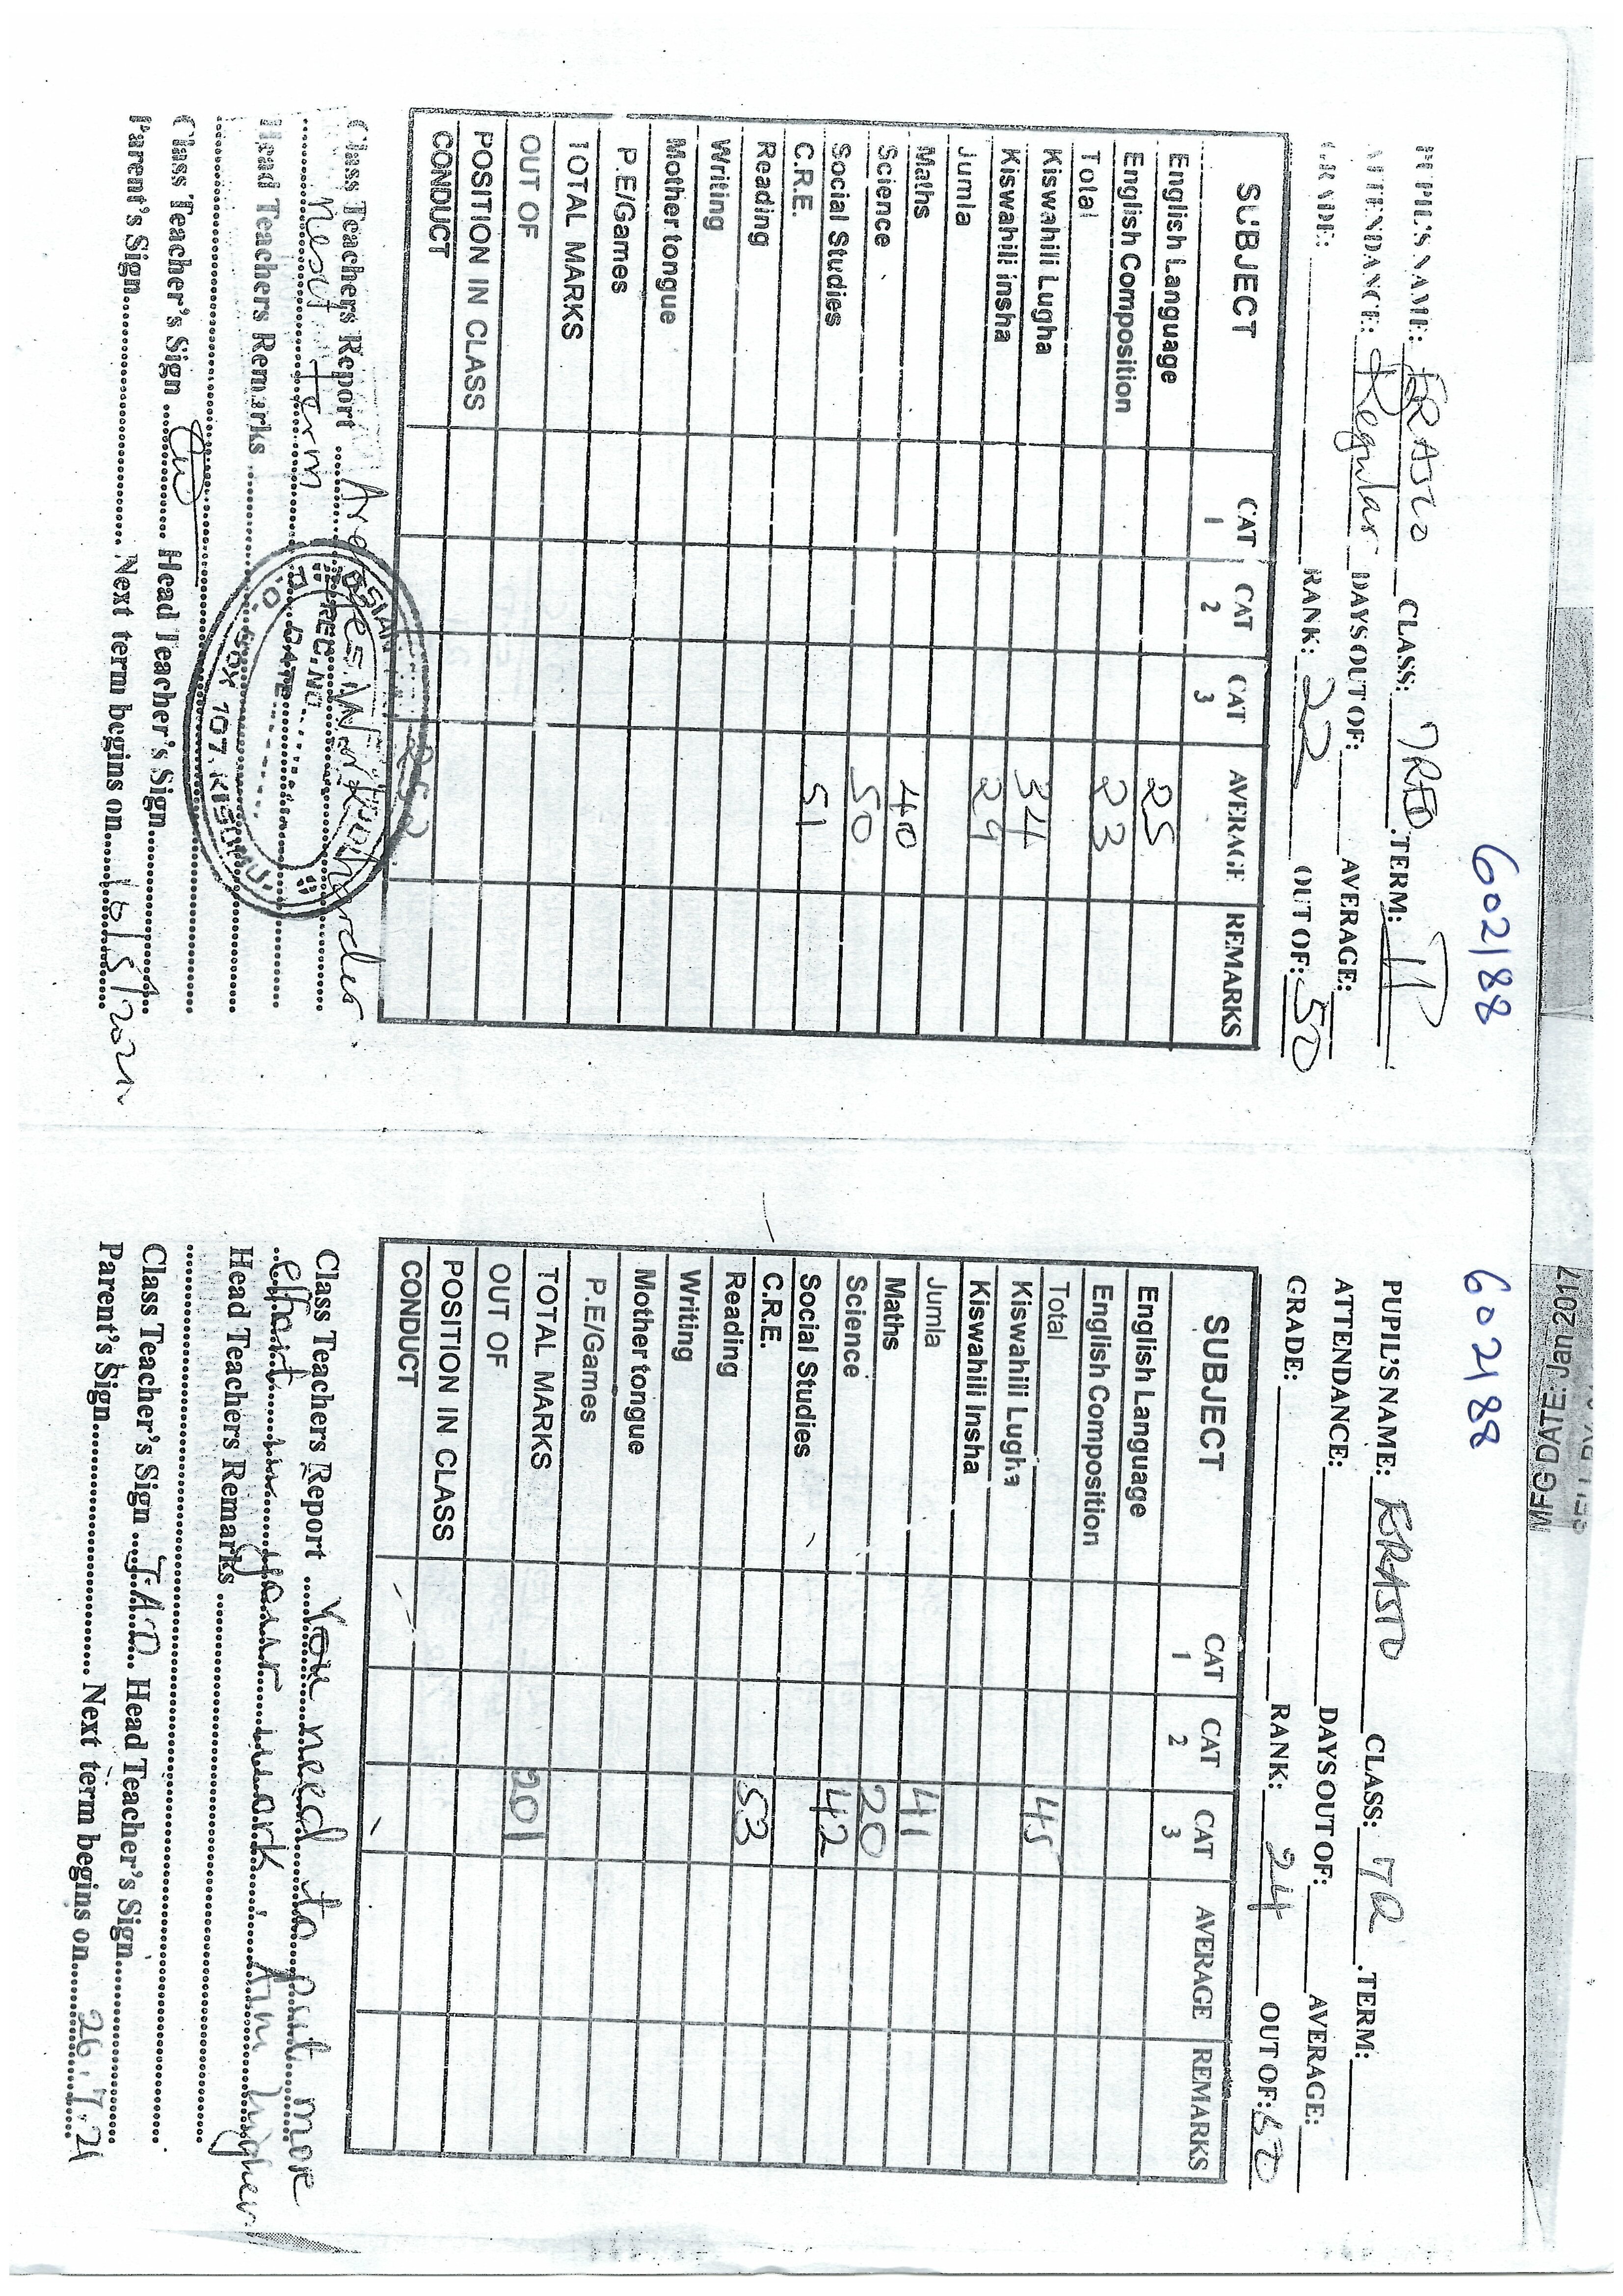 602188
PUPIL'S NAME: ERASTO CLASS: 7RED. TERM: II
ATTENDANCE: Regular DAYS OUT OF: AVERAGE:
GRADE: RANK: 22 OUT OF: 50
SUBJECT CAT 1 CAT 2 CAT 3 AVERAGE REMARKS
English Language 25
English Composition 23
Total
Kiswahili Lugha 34
Kiswahili insha 29
Jumla
Maths 40
Science 50
Social Studies 51
C.R.E.
Reading
Writing
Mother tongue
P.E/Games
TOTAL MARKS
OUT OF
POSITION IN CLASS
CONDUCT 252
Class Teachers Report Average. Work harder
next term
Head Teachers Remarks
Class Teacher's Sign Head Teacher's Sign
Parent's Sign Next term begins on 10/5/2021
REG. NO
DATE
BOX 107, KISUMU
602188
MFG DATE: Jan 2017
PUPIL'S NAME: ERASTO CLASS: 7R. TERM:
ATTENDANCE: DAYS OUT OF: AVERAGE:
GRADE: RANK: 24 OUT OF: 50
SUBJECT CAT 1 CAT 2 CAT 3 AVERAGE REMARKS
English Language
English Composition
Total
Kiswahili Lugha 45
Kiswahili Insha
Jumla
Maths 41
Science 20
Social Studies 42
C.R.E.
Reading 53
Writing
Mother tongue
P.E/Games
TOTAL MARKS 201
OUT OF
POSITION IN CLASS
CONDUCT
Class Teachers Report You need to put more
effort in your work. Aim higher
Head Teachers Remarks
Class Teacher's Sign J.A.O. Head Teacher's Sign
Parent's Sign Next term begins on 26.7.21